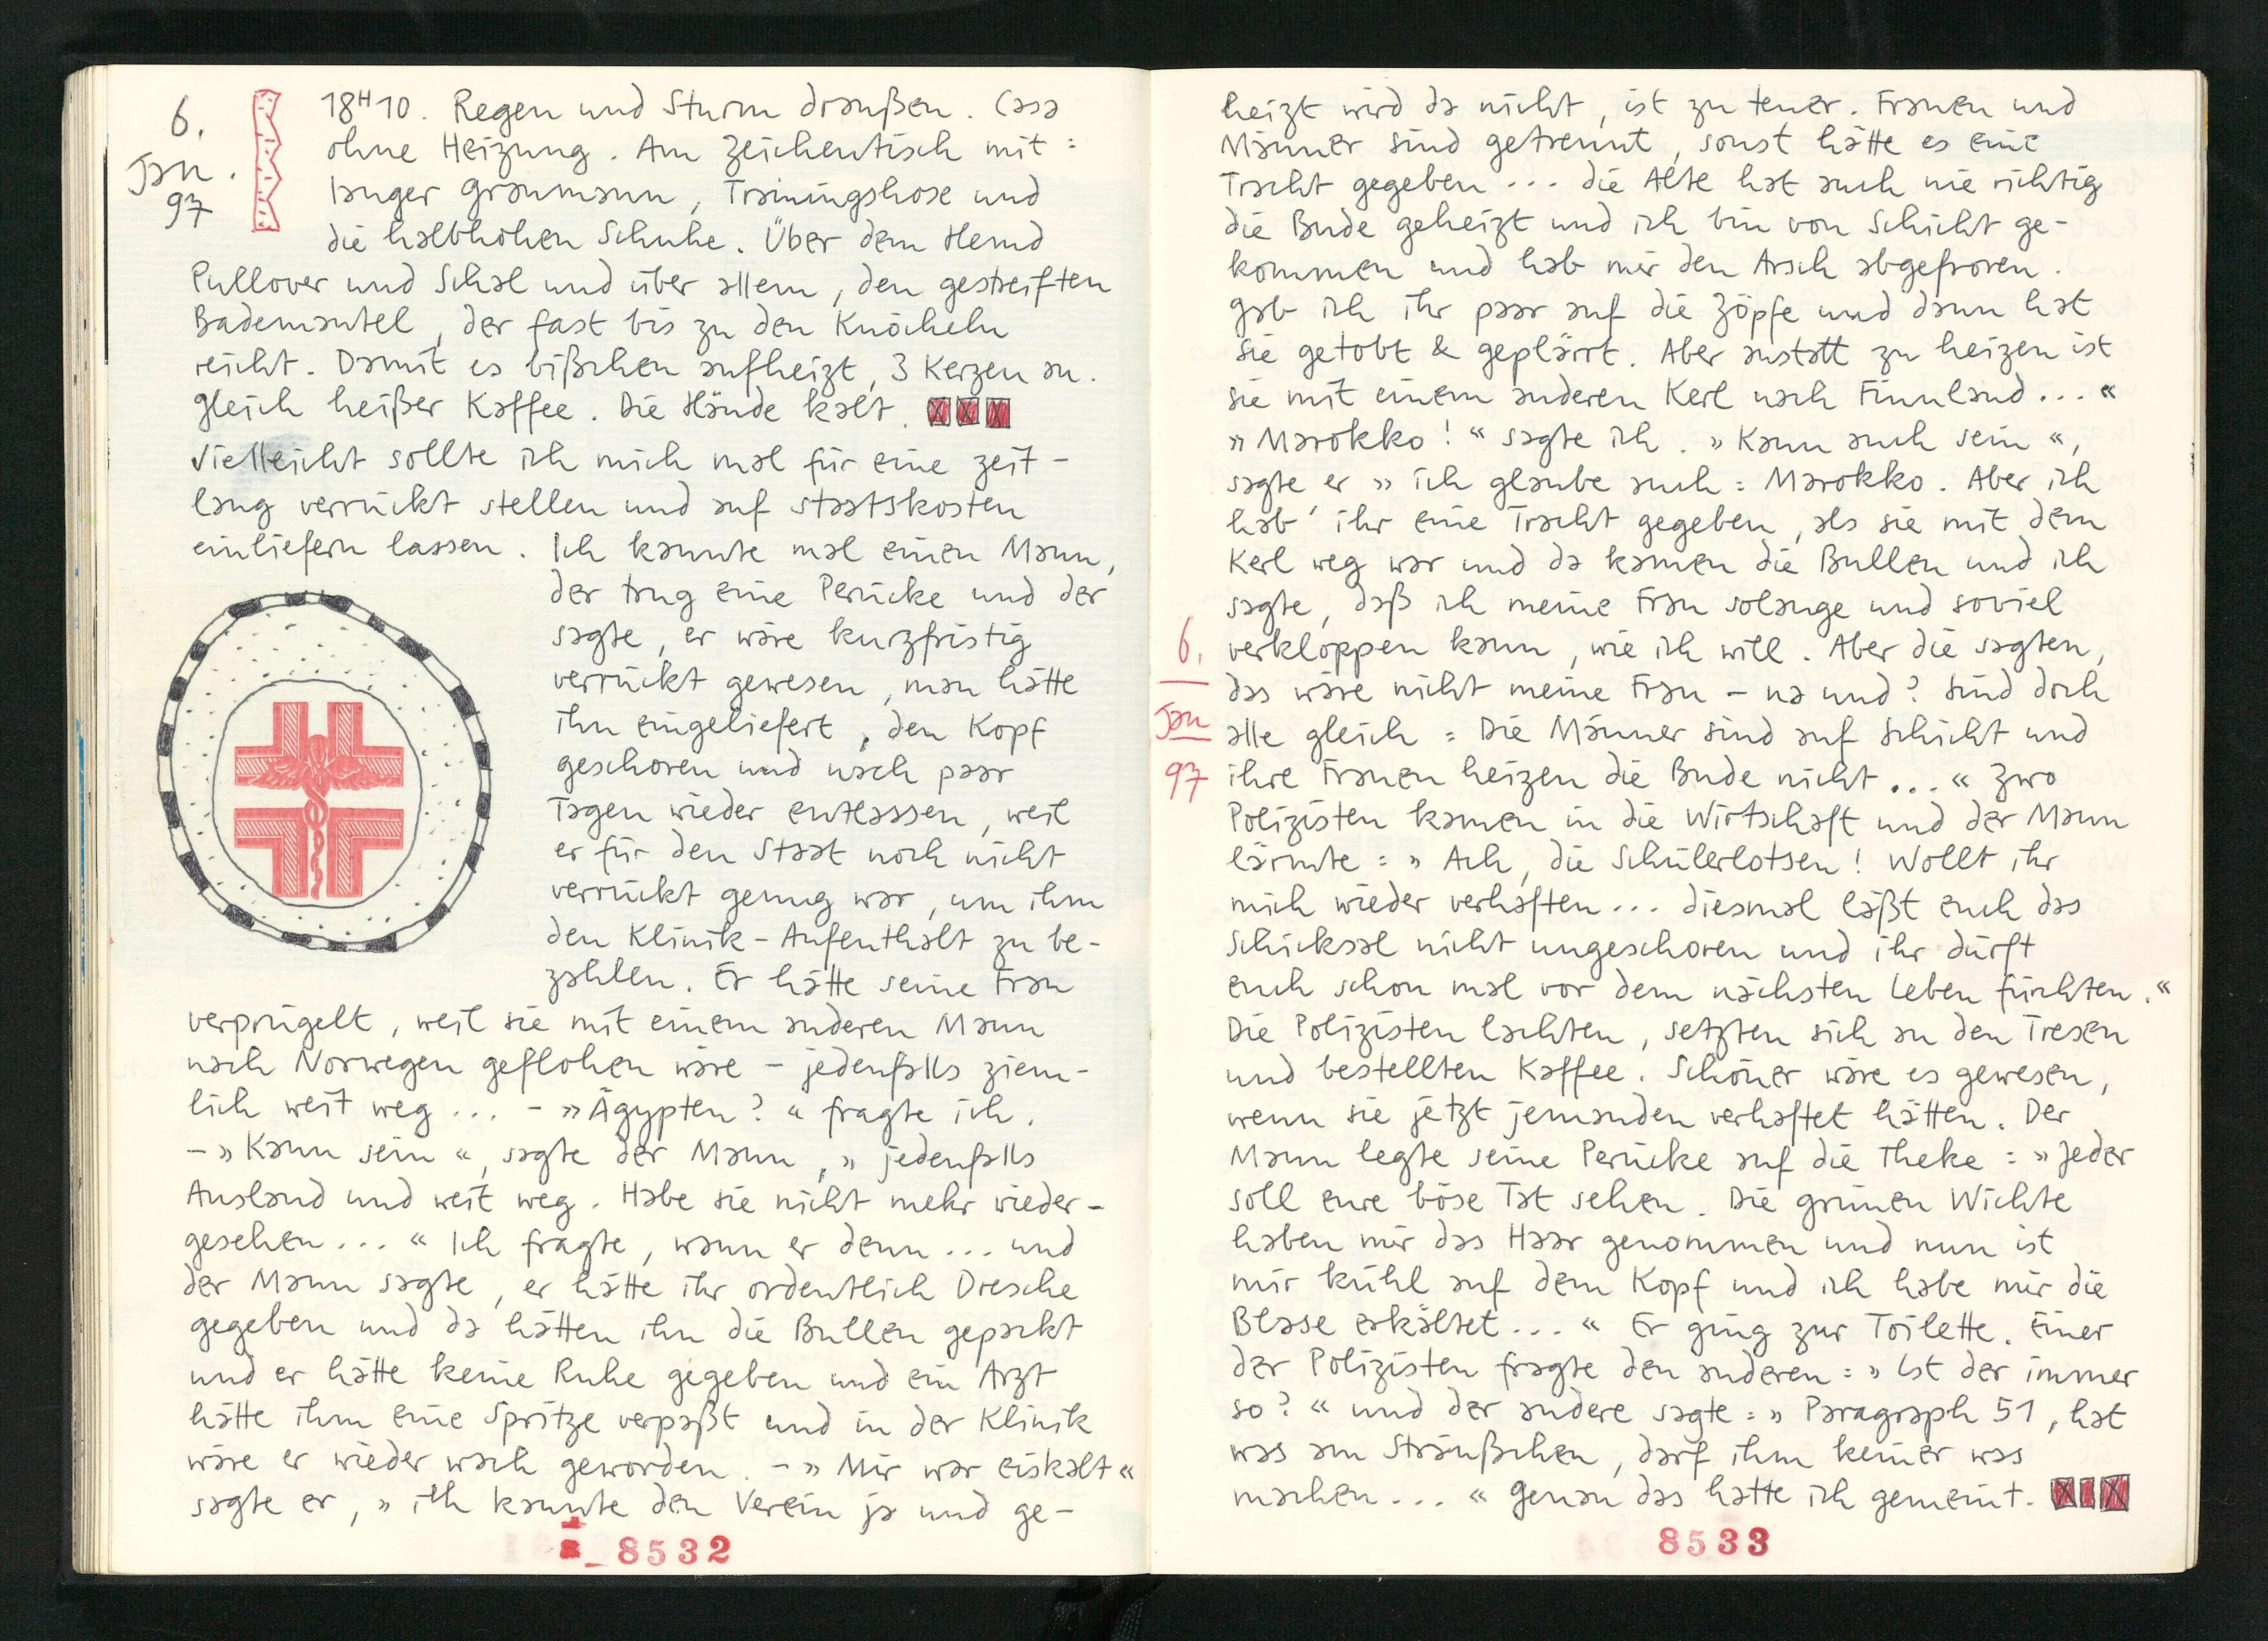 6.
Jan.
97
18H10. Regen und Sturm draußen. Casa
ohne Heizung. Am Zeichentisch mit:
langer Graumann, Trainingshose und
die halbhohen Schuhe. Über dem Hemd
Pullover und Schal und über allem, den gestreiften
Bademantel, der fast bis zu den Knöcheln
reicht. Damit es bißchen aufheizt, 3 Kerzen an.
Gleich heißer Kaffee. Die Hände kalt.
Vielleicht sollte ich mich mal für eine Zeit-
lang verrückt stellen und auf Staatskosten
einliefern lassen. Ich kannte mal einen Mann,
der trug eine Perücke und der
sagte, er wäre kurzfristig
verrückt gewesen, man hätte
ihn eingeliefert, den Kopf
geschoren und nach paar
Tagen wieder entlassen, weil
er für den Staat noch nicht
verrückt genug war, um ihm
den Klinik-Aufenthalt zu be-
zahlen. Er hätte seine Frau
verprügelt, weil sie mit einem anderen Mann
nach Norwegen geflohen wäre - jedenfalls ziem-
lich weit weg... - »Ägypten?« fragte ich.
- »Kann sein«, sagte der Mann, »jedenfalls
Ausland und weit weg. Habe sie nicht mehr wieder-
gesehen...« Ich fragte, wann er denn... und
der Mann sagte, er hätte ihr ordentlich Dresche
gegeben und da hätten ihn die Bullen gepackt
und er hätte keine Ruhe gegeben und ein Arzt
hätte ihm eine Spritze verpaßt und in der Klinik
wäre er wieder wach geworden. - »Mir war eiskalt«
sagte er, »ich kannte den Verein ja und ge-
8532
heizt wird da nicht, ist zu teuer. Frauen und
Männer sind getrennt, sonst hätte es eine
Tracht gegeben... die Alte hat auch nie richtig
die Bude geheizt und ich bin von Schicht ge-
kommen und hab mir den Arsch abgefroren.
Gab ich ihr paar auf die Zöpfe und dann hat
sie getobt & geplärrt. Aber anstatt zu heizen ist
sie mit einem anderen Kerl nach Finnland...«
»Marokko!« sagte ich. »Kann auch sein«,
sagte er »ich glaube auch: Marokko. Aber ich
hab' ihr eine Tracht gegeben, als sie mit dem
Kerl weg war und da kamen die Bullen und ich
sagte, daß ich meine Frau solange und soviel
6.
Jan
97
verkloppen kann, wie ich will. Aber die sagten,
das wäre nicht meine Frau - na und? Sind doch
alle gleich: Die Männer sind auf Schicht und
ihre Frauen heizen die Bude nicht...« Zwo
Polizisten kamen in die Wirtschaft und der Mann
lärmte: »Ach, die Schülerlotsen! Wollt ihr
mich wieder verhaften... diesmal läßt euch das
Schicksal nicht ungeschoren und ihr dürft
euch schon mal vor dem nächsten Leben fürchten.«
Die Polizisten lachten, setzten sich an den Tresen
und bestellten Kaffee. Schöner wäre es gewesen,
wenn sie jetzt jemanden verhaftet hätten. Der
Mann legte seine Perücke auf die Theke: »Jeder
soll eure böse Tat sehen. Die grünen Wichte
haben mir das Haar genommen und nun ist
mir kühl auf dem Kopf und ich habe mir die
Blase erkältet...« Er ging zur Toilette. Einer
der Polizisten fragte den anderen: »Ist der immer
so?« und der andere sagte: »Paragraph 51, hat
was am Sträußchen, darf ihm keiner was
machen...« Genau das hatte ich gemeint.
8533